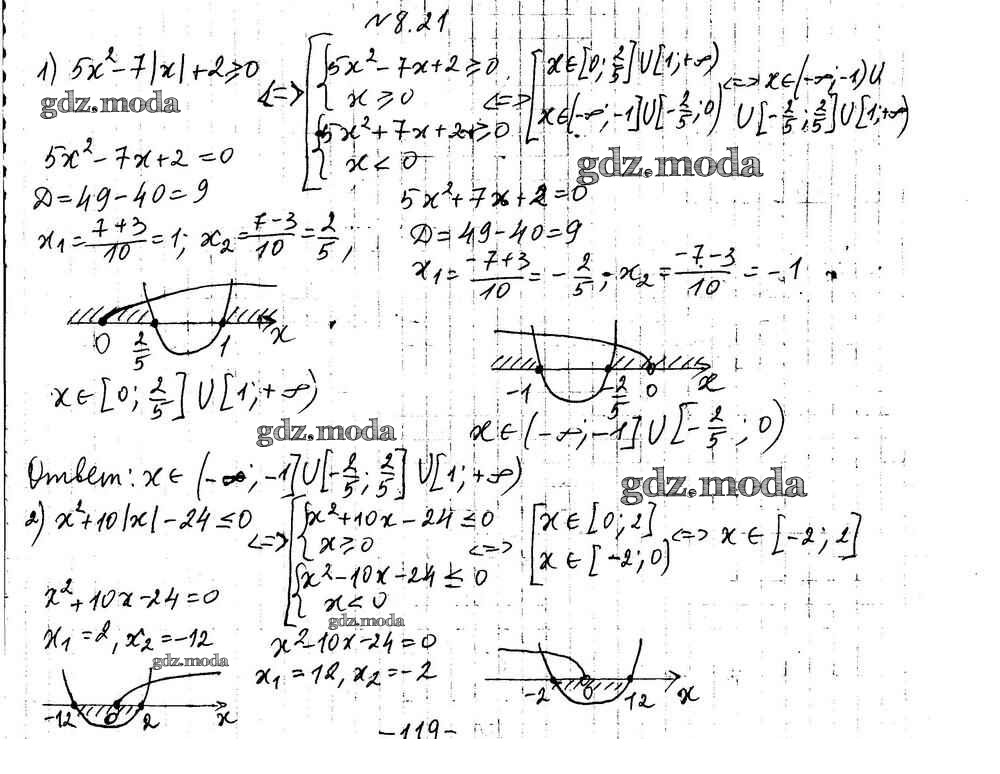 № 8.21
1) 5x² - 7|x| + 2 ≥ 0 <=> [ { 5x² - 7x + 2 ≥ 0, x ≥ 0; { 5x² + 7x + 2 ≥ 0, x < 0 <=> [ x ∈ [0; 2/5] ∪ [1; +∞), x ∈ (-∞; -1] ∪ [-2/5; 0) <=> x ∈ (-∞; -1) ∪
∪ [-2/5; 2/5] ∪ [1; +∞)
gdz.moda
gdz.moda
5x² - 7x + 2 = 0
D = 49 - 40 = 9
x₁ = (7+3)/10 = 1; x₂ = (7-3)/10 = 2/5;
5x² + 7x + 2 = 0
D = 49 - 40 = 9
x₁ = (-7+3)/10 = -2/5; x₂ = (-7-3)/10 = -1
0 2/5 1 x
-1 -2/5 0 x
x ∈ [0; 2/5] ∪ [1; +∞)
x ∈ (-∞; -1] ∪ [-2/5; 0)
gdz.moda
Ответ: x ∈ (-∞; -1] ∪ [-2/5; 2/5] ∪ [1; +∞)
gdz.moda
2) x² + 10|x| - 24 ≤ 0 <=> [ { x² + 10x - 24 ≤ 0, x ≥ 0; { x² - 10x - 24 ≤ 0, x < 0 <=> [ x ∈ [0; 2], x ∈ [-2; 0) <=> x ∈ [-2; 2]
gdz.moda
x² + 10x - 24 = 0
x₁ = 2, x₂ = -12
gdz.moda
x² - 10x - 24 = 0
x₁ = 12, x₂ = -2
-12 0 2 x
-2 0 12 x
-119-